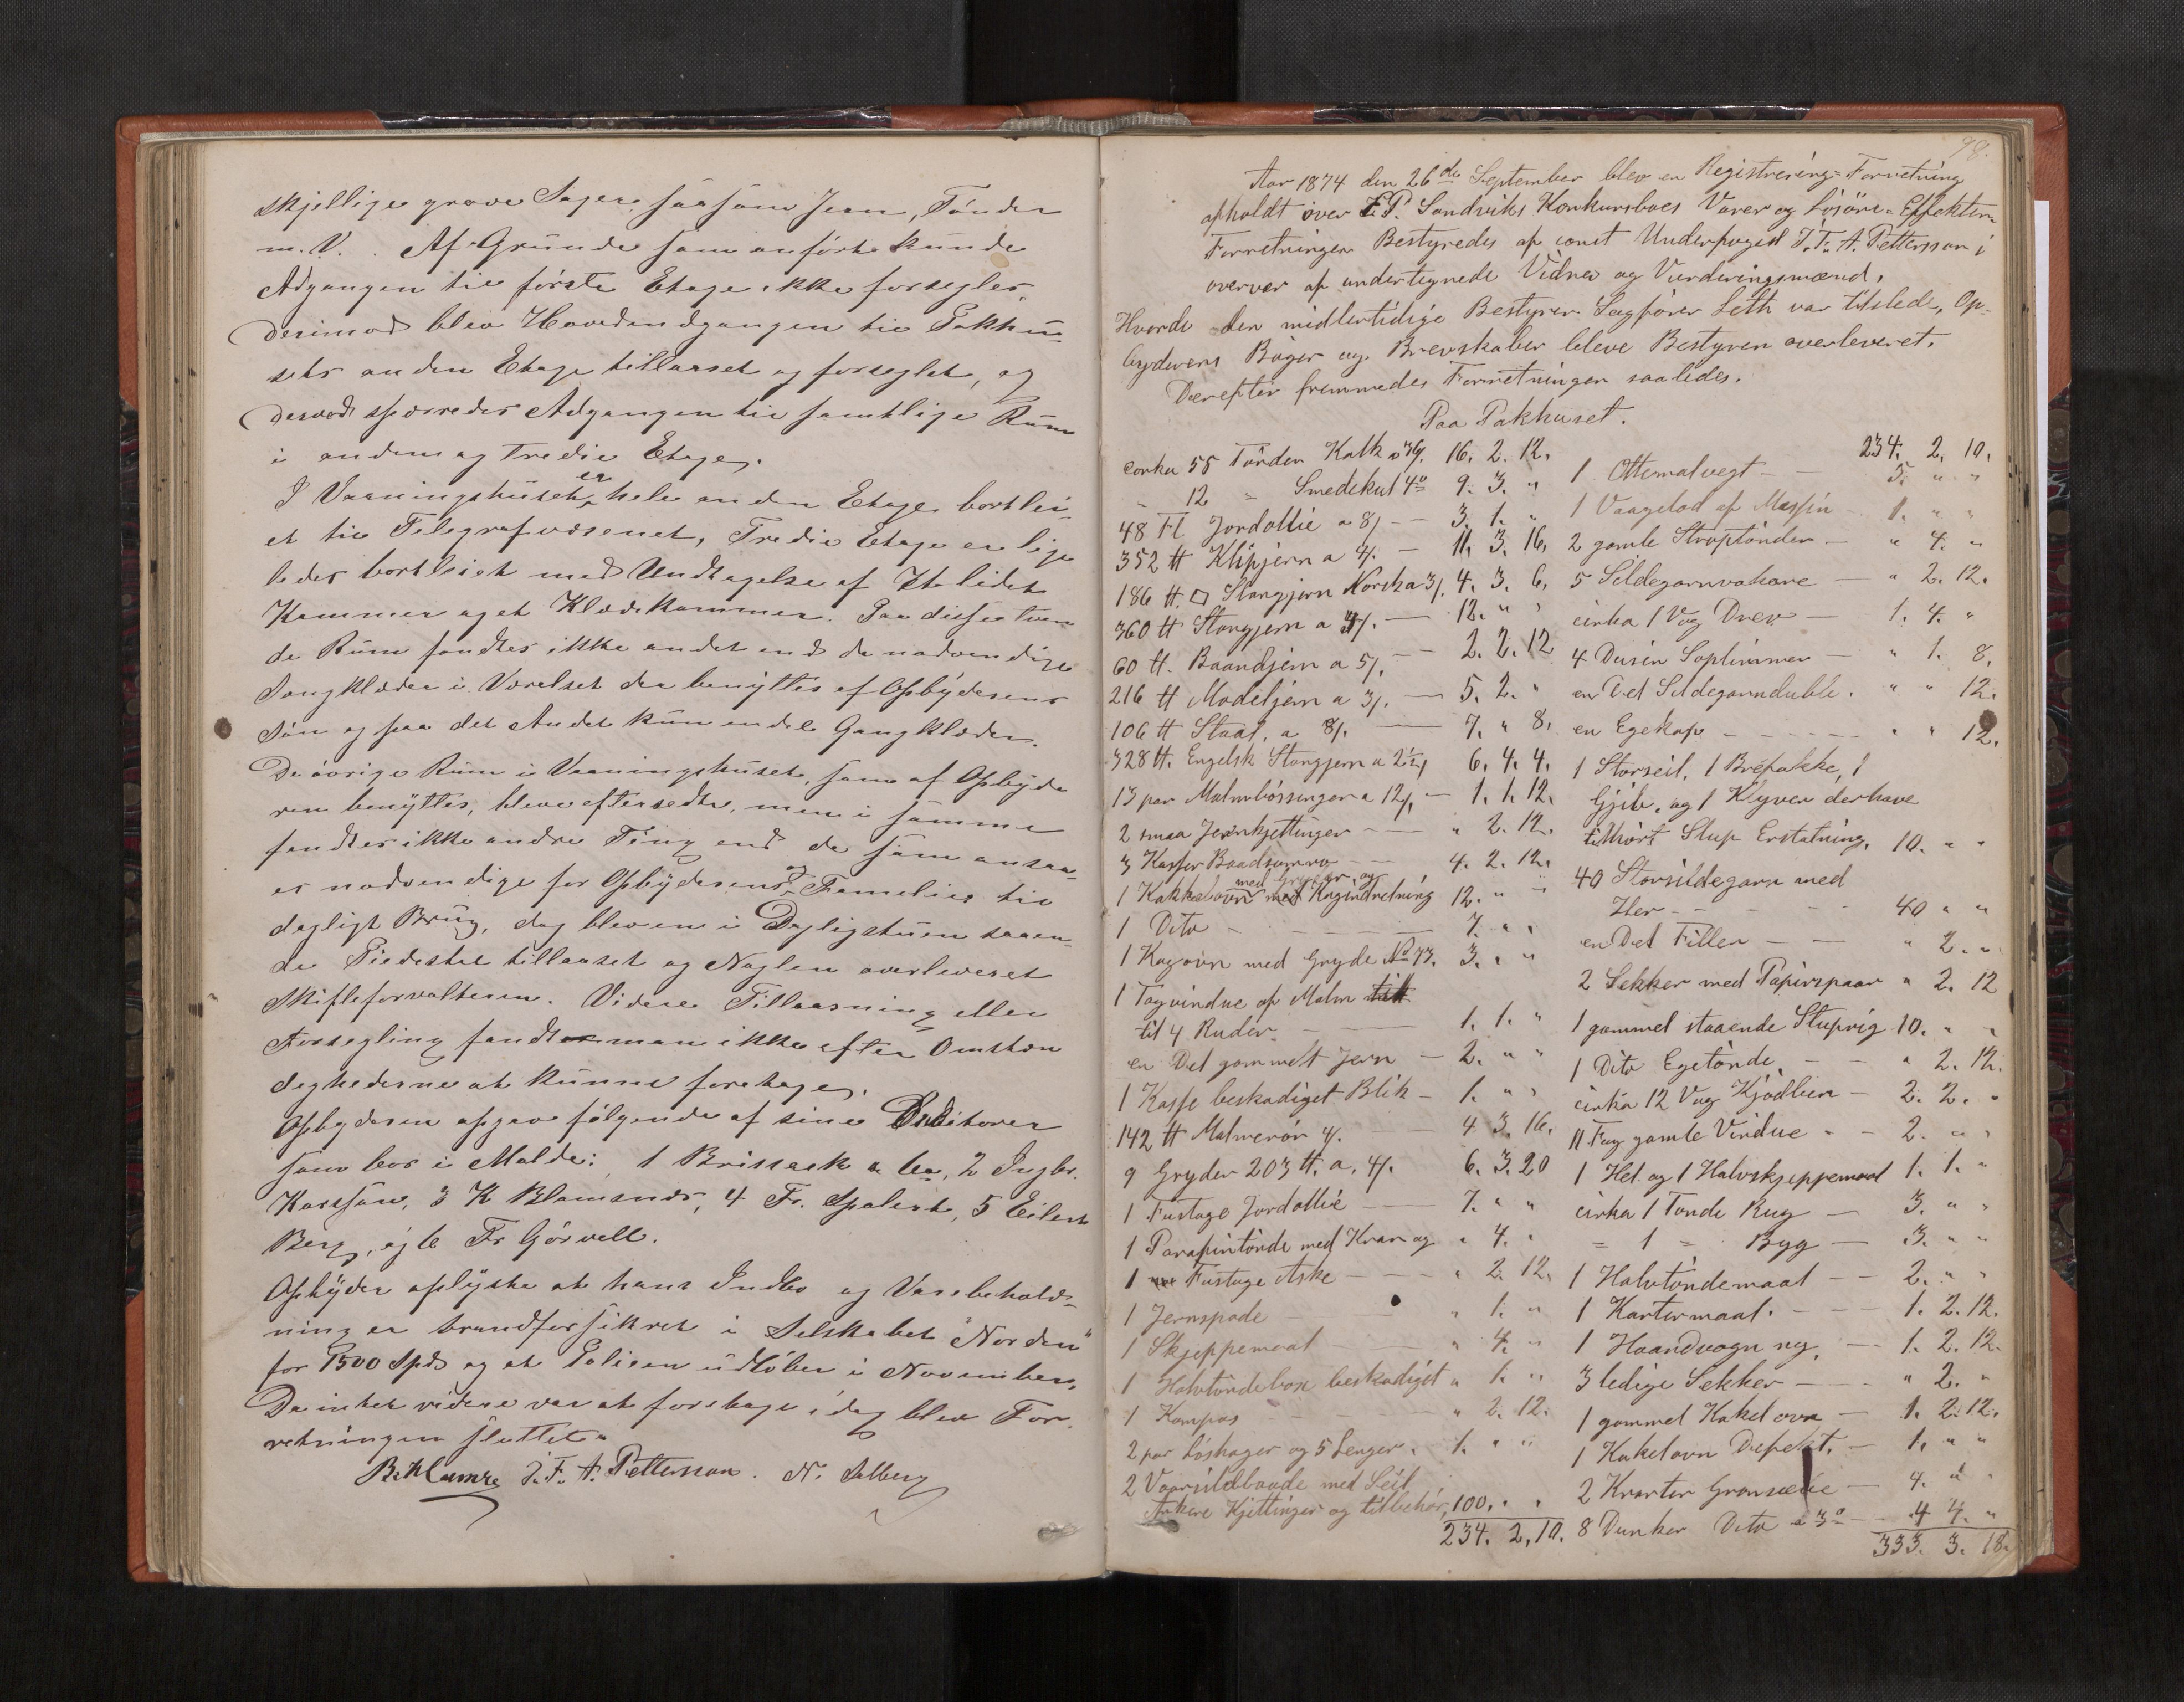 skjellige grove Sager saasom Jern, Tönder
m. V. Af Grunde som anförte kunde
Adgangen til förste Etage ikke forsegles,
derimod blev Hovedindgangen til Pakhu-
sets anden Etage tillaaset og forseglet, og
derved spærredes Adgangen til samtlige Rum
i anden og tredie Etage.
I Vaaningshuset er hele anden Etage bortlei-
et til Telegrafvæsenet, Tredie Etage er lige
ledes bortleiet med Undtagelse af Et lidet
Kammer og et Klædekammer. Paa disse tven
de Rum fandtes ikke andet end de nødvendige
Sengklæder i Værelset der benyttes af Opbyderens
Sön og paa det Andet kun endel Gangklæder.
De övrige Rum i Vaaningshuset, som af Opbyde
ren benyttes, bleve efterseede, men i samme
fandtes ikke andre Ting end de som ansaa-
es nødvendige for Opbyderens og Familie til
dagligt Brug, dog blev en i Dagligstuen staaen-
de Piedestal tillaaset og Nøglen overleveret
Skifteforvalteren. Videre Tillaasning eller
Forsegling fandt man ikke efter Omstæn
deghederne at kunne foretages.
Opbyderen opgav fölgende af sine Debitorer
som bor i Molde: 1 Brissack & Co, 2 Ingbr.
Karssön, 3 K Blamsnes, 4 Fr. Spolert, 5 Eilert
Berg, og 6 Fr Görvell.
Opbyder oplyste at hans Indbo og Varebehold-
ning er brandforsikret i Selskabet "Norden"
for 1500 Spd og at Policen udlöber i November.
Da intet videre var at foretage idag blev For-
retningen sluttet.
B. Klumre J. F. A. Pettersson. N. Solberg
98.
Aar 1874 den 26de September blev en Registrering-Forretning
afholdt over P. Sandviks Konkursboes Varer og Lösöre-Effekter.
Forretningen Bestyredes af const Underfoged J. F. A. Pettersson i
overvær af undertegnede Vidner og Vurderingsmænd.
Hvorde den midlertidige Bestyrer Sagförer Leth var tilstede, Op-
byderens Böger og Brevskaber bleve Bestyren overleveret.
Derefter fremmedes Forretningen saaledes.
Paa Pakhuset.
cirka 55 Tönder Kalk 16. 2. 12.
" 12 " Smedekul 9. 3. "
48 Fl Jordollie a 8/ — 3. 1. "
352 ℔ Klipjern a 4/. — 11. 3. 16.
186 ℔. □ Stangjern Norska 3/. 4. 3. 6.
360 ℔ Stangjern a 4/. — 12. " "
60 ℔. Baandjern a 5/. — 2. 2. 12
216 ℔ Modeljern a 3/. — 5. 2. "
106 ℔ Staal, a 8/. — 7. " 8.
328 ℔. Engelsk Stangjern a 2½/ 6. 4. 4.
13 par Malmbössinger a 12/. — 1. 1. 12.
2 smaa Jernkjettinger — " 2. 12.
3 Kasser Baadsømm — 4. 2. 12.
1 Kakkelovn med Gryder og Kogindretning 12. " "
1 Dito — 7. " "
1 Kogovn med Gryde No 73. 3. " "
1 Tagvindue af Malm
til 4 Ruder — 1. 1. "
en Del gammelt Jern — 2. " "
1 Kasse beskadiget Blik — 1. " "
142 ℔ Malmerör 4/. 4 3. 16.
9 Gryder 203 ℔. a, 4/. 6. 3. 20
1 Fustage Jordollie — 7. " "
1 Parafintönde med Kran og " 4. "
1 Fustage Aske — " 2. 12.
1 Jernspade — " 1. "
1 Skjeppemaal — " 4. "
1 Halvtöndeböxe beskadiget " 1. "
1 Kompas " 2. 12.
2 par Löshager og 5 Lenger. 1. " "
2 Vaarsildbaade med Seil
Ankere Kjettinger og tilbehör, 100. " "
234. 2. 10.
234. 2. 10.
1 Ottemalvegt — 5. " "
1 Vaagelod af Messin 1. " "
2 gamle Straptönder — " 4. "
5 Sildegarnvakare — " 2. 12.
cirka 1 Vog Drev — 1. 4. "
4 Dusin Soplimmer — " 1. 8.
en Del Sildegarnduble. " " 12.
en Egekap — " " 12.
1 Storseil, 1 Brefokke, 1
Gjib, og 1 Klyver derhave
tilhört Slup Erstatning. 10. " "
40 Storsildegarn med
40 " "
en Del Filler — " 2. "
2 Sekker med Papirspaar " 2. 12
1 gammel staaende Sluprig 10. " "
1 Dito Egetönde — " 2. 12.
cirka 12 Vog Kjödben — 2. 2. "
11 Fag gamle Vindue — 2. " "
1 Hel. og 1 Halvskjeppemaal 1. 1. "
cirka 1 Tonde Rug — 3. " "
" 1 " Byg — 3. " "
1 Halvtöndemaal — 2. " "
1 Kartermaal. — 1. 2. 12.
1 Haandvogn ny. — 1. 2. 12.
3 ledige Sekker — " 2. "
1 gammel Kakelovn — 1. 2. 12.
1 Kakelovn Defekt. — 1. " "
2 Krarter Gronsæbe — 4. " "
8 Dunker Dito a 3 — 4 4. "
333. 3. 18.